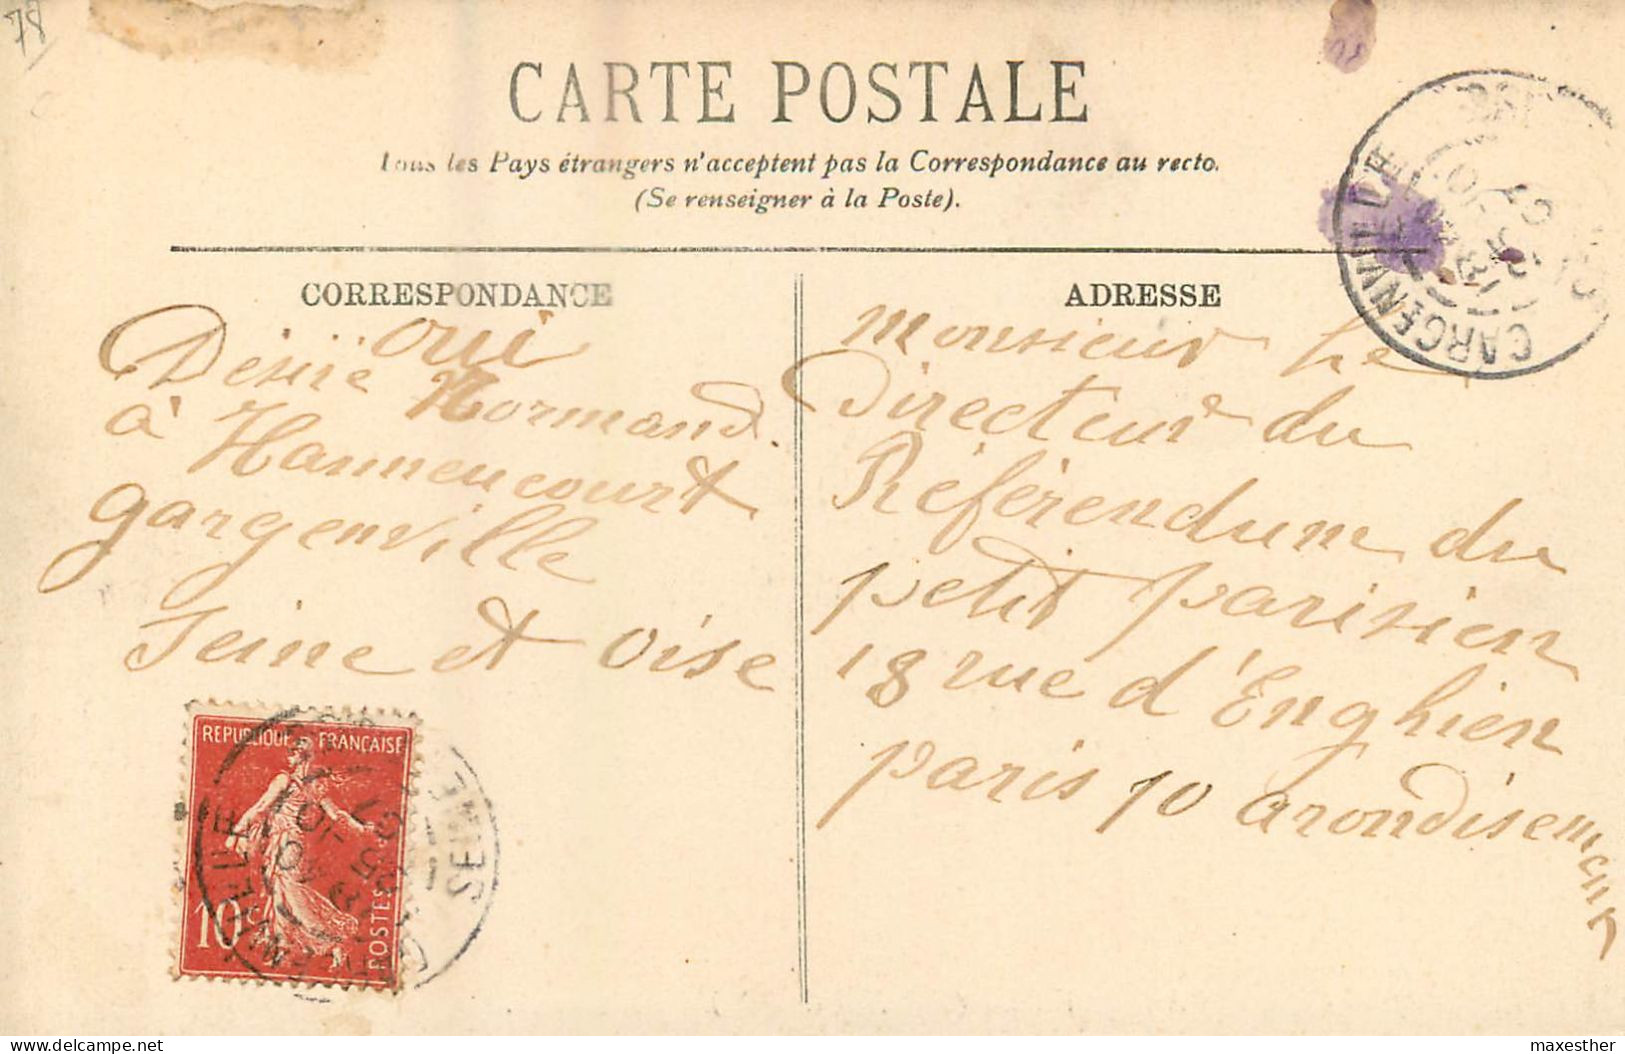 78
CARTE POSTALE
Tous les Pays étrangers n'acceptent pas la Correspondance au recto.
(Se renseigner à la Poste).
CORRESPONDANCE
oui
Désiré Normand
à Hanneucourt
gargenville
Seine et Oise
ADRESSE
Monsieur Le
Directeur du
Référendum du
petit parisien
18 rue d'Enghien
paris 10 arondisement
GARGENVILLE
REPUBLIQUE FRANÇAISE
10c
POSTES
GARGENVILLE
SEINE
delcampe.net
maxesther